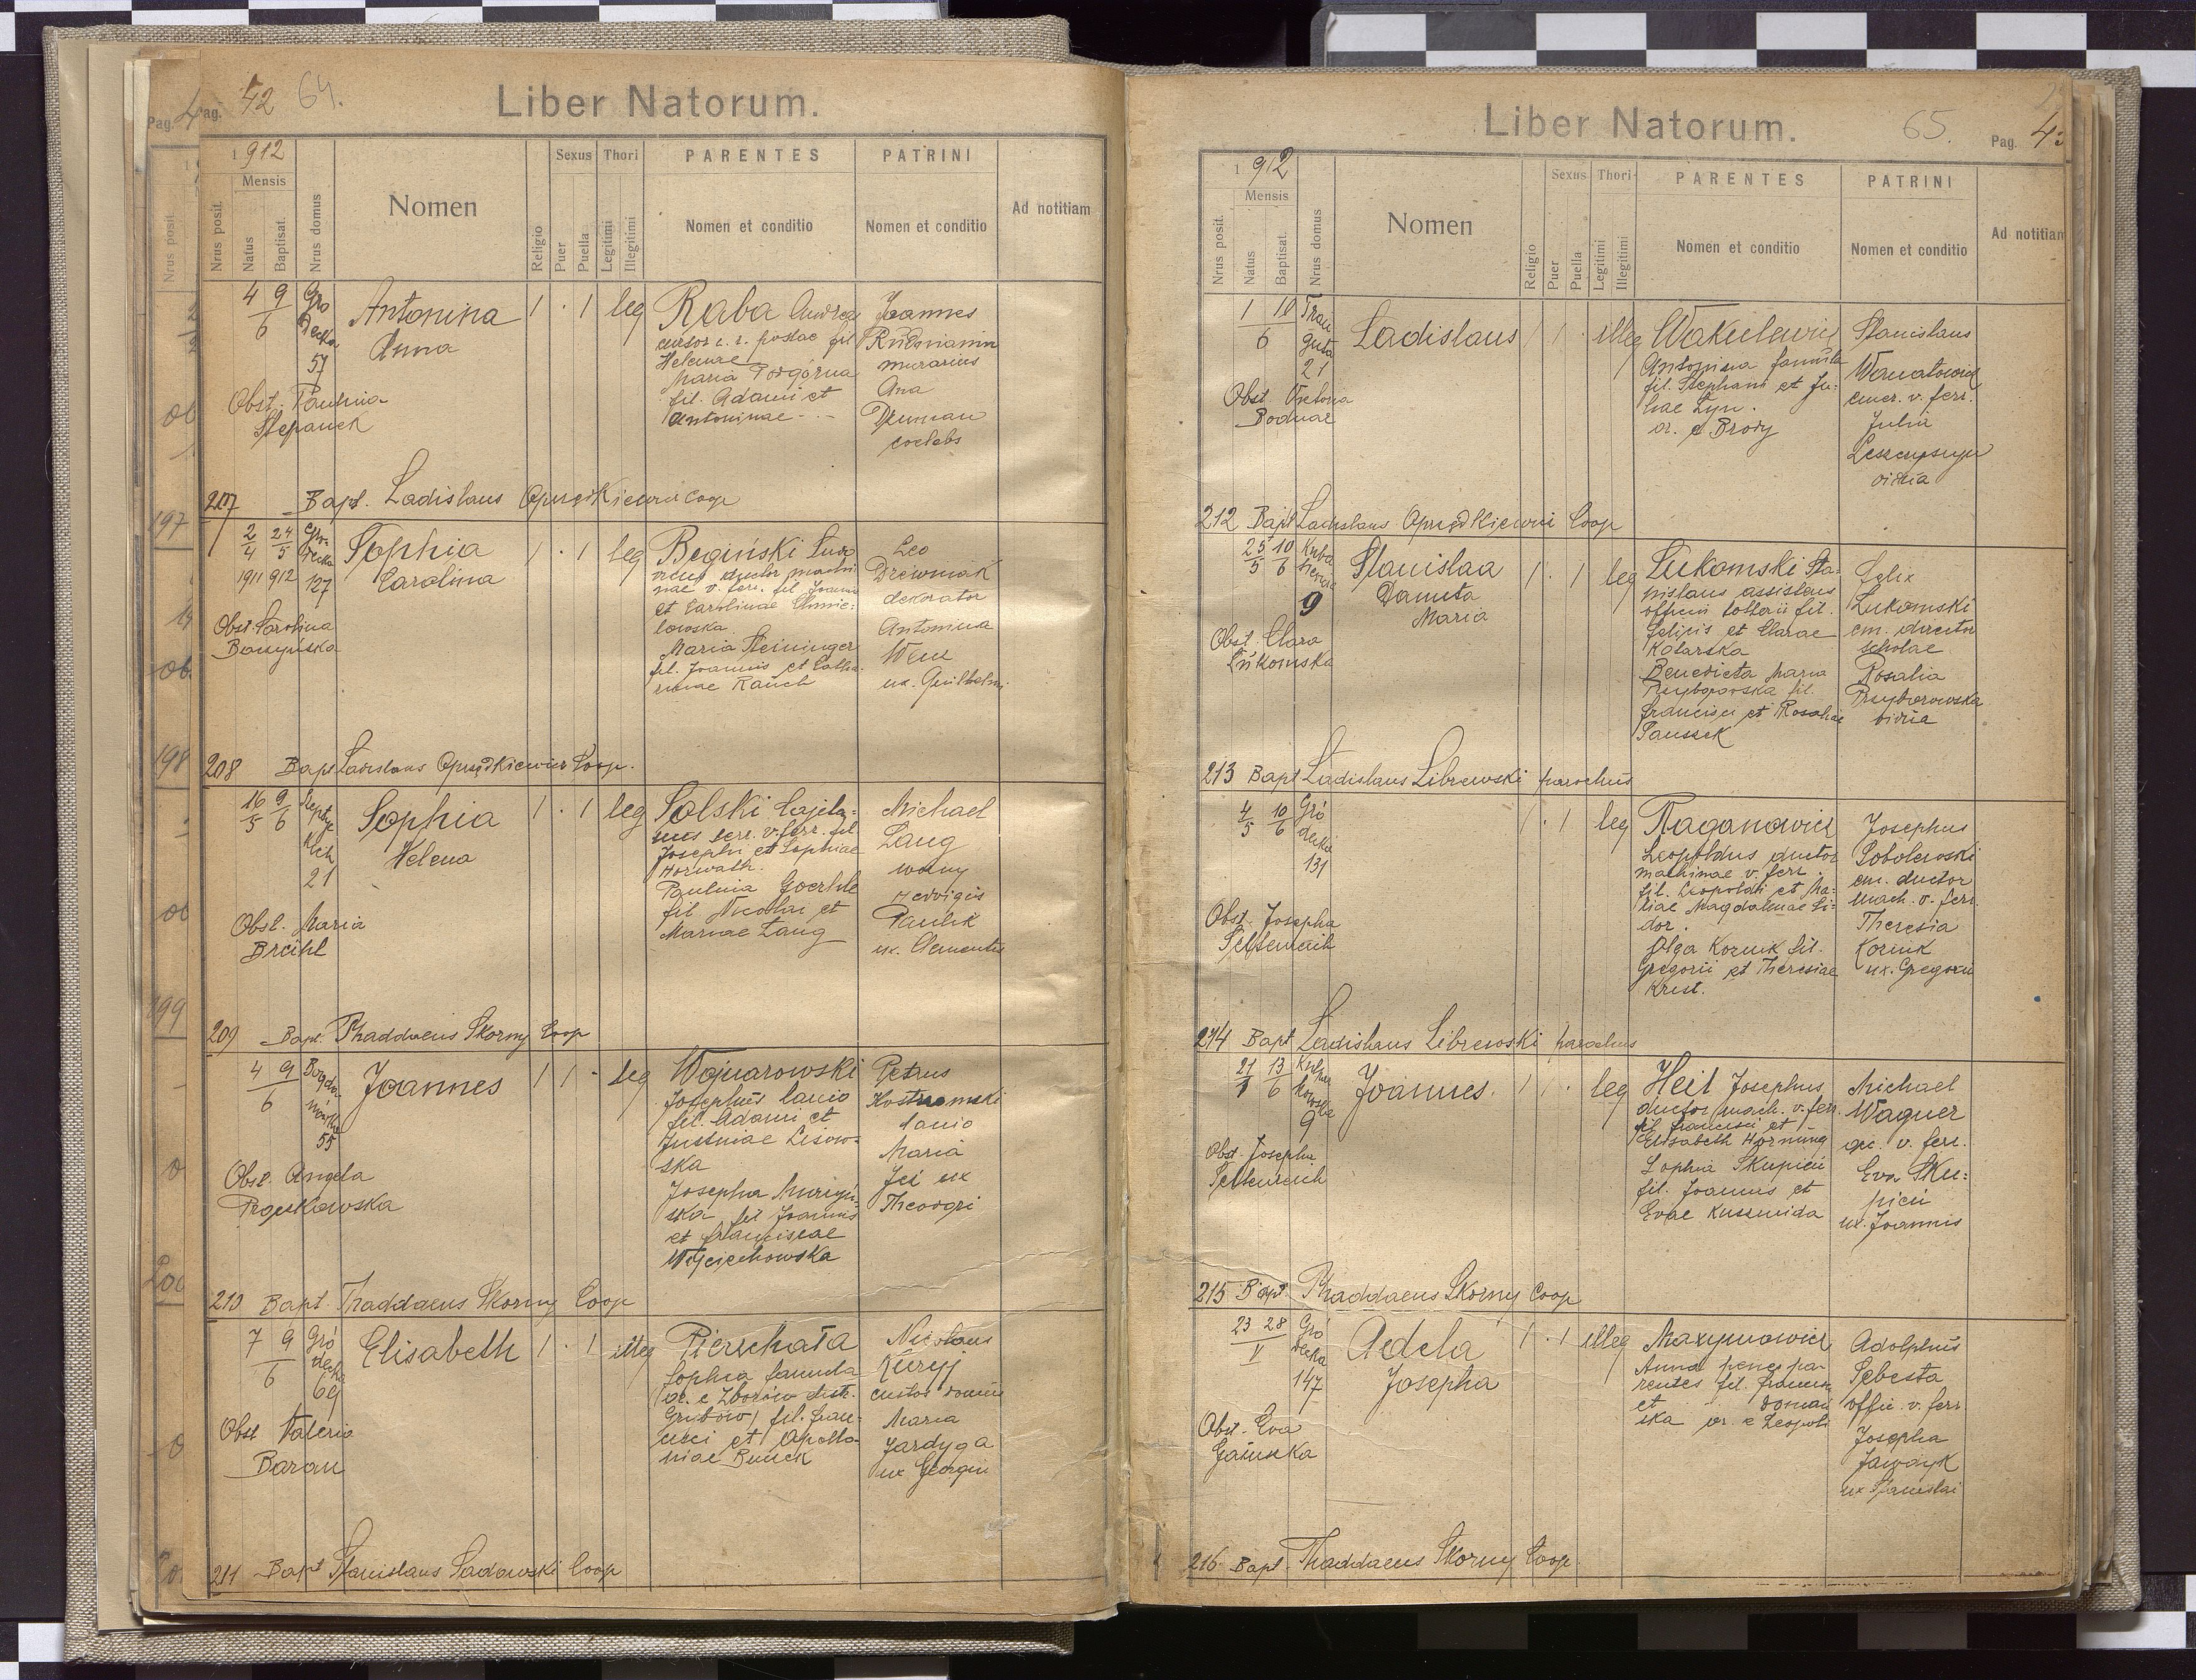 Pag. 42 64.
Liber Natorum.
1912
Mensis
Nrus posit.
Natus
Baptisat.
Nrus domus
Nomen
Religio
Sexus
Puer
Puella
Thori
Legitimi
Illegitimi
PARENTES
Nomen et conditio
PATRINI
Nomen et conditio
Ad notitiam
4 9
6
Gro
decka
57
Antonina
Anna
1 · 1 leg
Raba Andreas
cursor c. r. postae fil
Helenae
Maria Podgórna
fil. Adami et
Antoninae
Joannes
murarius
Ana
Duman
coelebs
Obst. Paulina
Stepanek
207 Bapt. Ladislaus Oprzędkiewicz Coop
2 24
4 5
1911 912
Gro
decka
127
Sophia
Carolina
1 · 1 leg
Begiński Ludo
vicus ductor machi
nae v. ferr. fil Joannis
et Carolinae Chmie-
lowska
Maria Steininger
fil. Joannis et Catha
rinae Rauch
Leo
Drewniak
dekorator
Antonina
ux. Guilhelmi
Obst. Carolina
208 Bapt Ladislaus Oprzędkiewicz Coop.
16 9
5 6
21
Sophia
Helena
1 · 1 leg
Solski Cajeta-
nus serv. v. ferr. fil
Josephi et Sophiae
Horwath.
Paulina
fil. Nicolai et
Mariae Lang
Michael
Lang
woźny
Hedvigis
Paulik
ux. Clementis
Obst. Maria
Breihl
209 Bapt. Thaddaeus Skorny Coop
4 9
6
Bogda-
nówka
55
Joannes
1 1 - leg
Wojnarowski
Josephus lanio
fil. Adami et
Justinae Lisow-
ska
Josepha
ska fil Joannis
et Franciscae
Wojciechowska
Petrus
lanio
Maria
ux
Theodori
Obst. Angela
Proszkowska
210 Bapt. Thaddaeus Skorny Coop
7 9
6
Gró
decka
69
Elisabeth
1 · 1 illeg
Pierzchała
Sophia famula
or. e Zborów distr.
Grybów, fil. Fran-
cisci et Apollo-
niae
Nicolaus
Kuryj
custos domus
Maria
Jardyga
ux Georgii
Obst. Valeria
Baran
211 Bapt Stanislaus Sadowski Coop
Liber Natorum.
65. Pag. 43
1912
Mensis
Nrus posit.
Natus
Baptisat.
Nrus domus
Nomen
Religio
Sexus
Puer
Puella
Thori
Legitimi
Illegitimi
PARENTES
Nomen et conditio
PATRINI
Nomen et conditio
Ad notitiam
1 10
6
Trau
guta
21
Ladislaus
1 1 · illeg
Wakulewicz
Antonina famula
fil. Stephani et Ju-
liae Zyn.
or. e Brody
Stanislaus
emer. v. ferr.
Julia
vidua
Obst. Victoria
Bodnar
212 Bapt Ladislaus Oprzędkiewicz Coop
25 10
5 6
9
Stanislaa
Danuta
Maria
1 · 1 leg
Łukomski Sta-
nislaus assistens
officii lotterii fil.
Felicis et Clarae
Kolarska
Benedicta Maria
Przyborowska fil.
Francisci et Rosaliae
Paussek
Felix
Łukomski
em. director
scholae
Rosalia
Przyborowska
vidua
Obst. Clara
Łukomska
213 Bapt Ladislaus Librewski parochus
4 10
5 6
Gró
decka
131
1 · 1 leg
Raganowicz
Leopoldus ductor
machinae v. ferr.
fil. Leopoldi et Ma-
riae Magdalenae Si-
dor.
Olga Kozuk fil.
Gregorii et Theresiae
Krest.
Josephus
Sobolewski
em. ductor
mach. v. ferr.
Theresia
Kozuk
ux. Gregorii
Obst. Josepha
214 Bapt Ladislaus Librewski parochus
21 13
6
9
Joannes.
1 1 · leg
Heil Josephus
ductor mach. v. ferr.
fil Francisci et
Elisabeth Hornung
Sophia Skupień
fil. Joannis et
Evae
Michael
Wagner
v. ferr.
Eva Sku-
pień
ux. Joannis
Obst. Josepha
215 Bapt. Thaddaeus Skorny Coop
23 28
V
Gró
decka
147
Adela
Josepha
1 · 1 illeg
Maxymowicz
Anna penes pa-
rentes fil. Francisci
et Doman
ska or. e Leopoli
Adolphus
Sebesta
offic. v. ferr.
Josepha
Jawdyk
ux Stanislai
Obst. Eva
216 Bapt. Thaddaeus Skorny Coop.